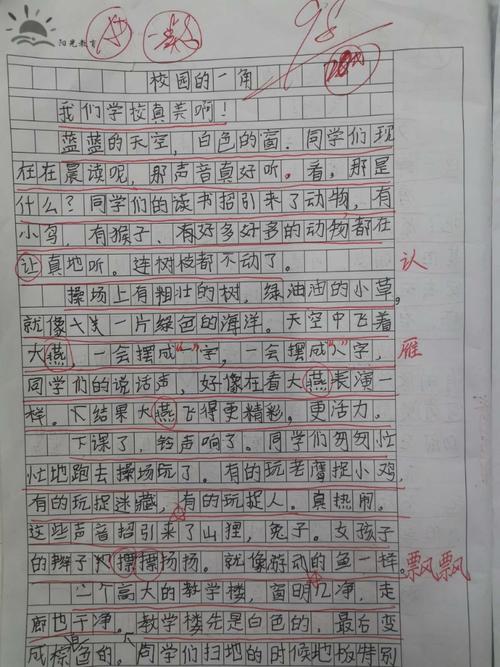 阳光教育
98
校园的一角
我们学校真美啊！
蓝蓝的天空，白色的窗。同学们现
在在晨读呢，那声音真好听。看，那是
什么？同学们的读书招引来了动物，有
小鸟，有猴子、有好多好多的动物都在
让真地听。连树枝都不动了。 认
操场上有粗壮的树，绿油油的小草。
就像一片绿色的海洋。天空中飞着
大燕，一会摆成“一”字，一会摆成“人”字， 雁
同学们的说话声，好像在看大燕表演一
样。下结果大燕飞得更精彩，更活力。
下课了，铃声响了。同学们匆匆忙
忙地跑去操场玩了。有的玩老鹰捉小鸡，
有的玩捉迷藏，有的玩捉人。真热闹。
这些声音招引来了山狸，兔子。女孩子
的辫子扬扬。就像游的鱼一样。 飘飘
个高大的教学楼，窗明几净，走
廊也干净。教学楼先是白色的，最后变
成棕色的。同学们扫地的时候地板特别